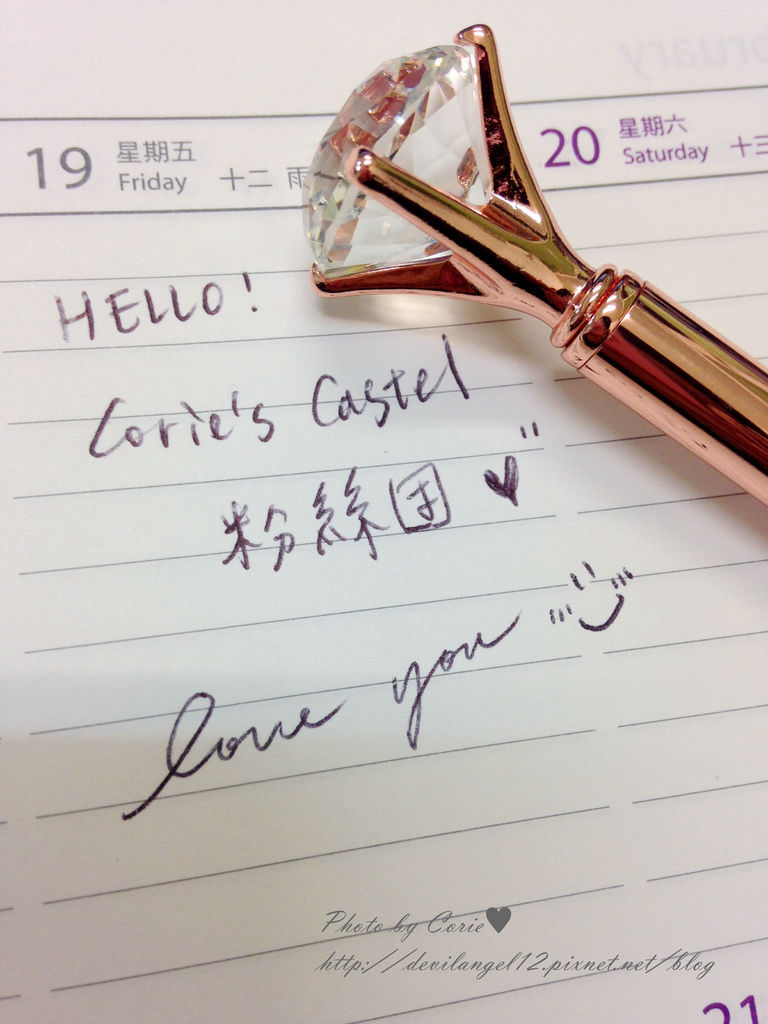 19 星期五 Friday 十二 雨
20 星期六 Saturday 十三
HELLO!
Corie's Castel
粉絲团 ♥
love you
Photo by Corie♥
http://devilangel12.pixnet.net/blog
21